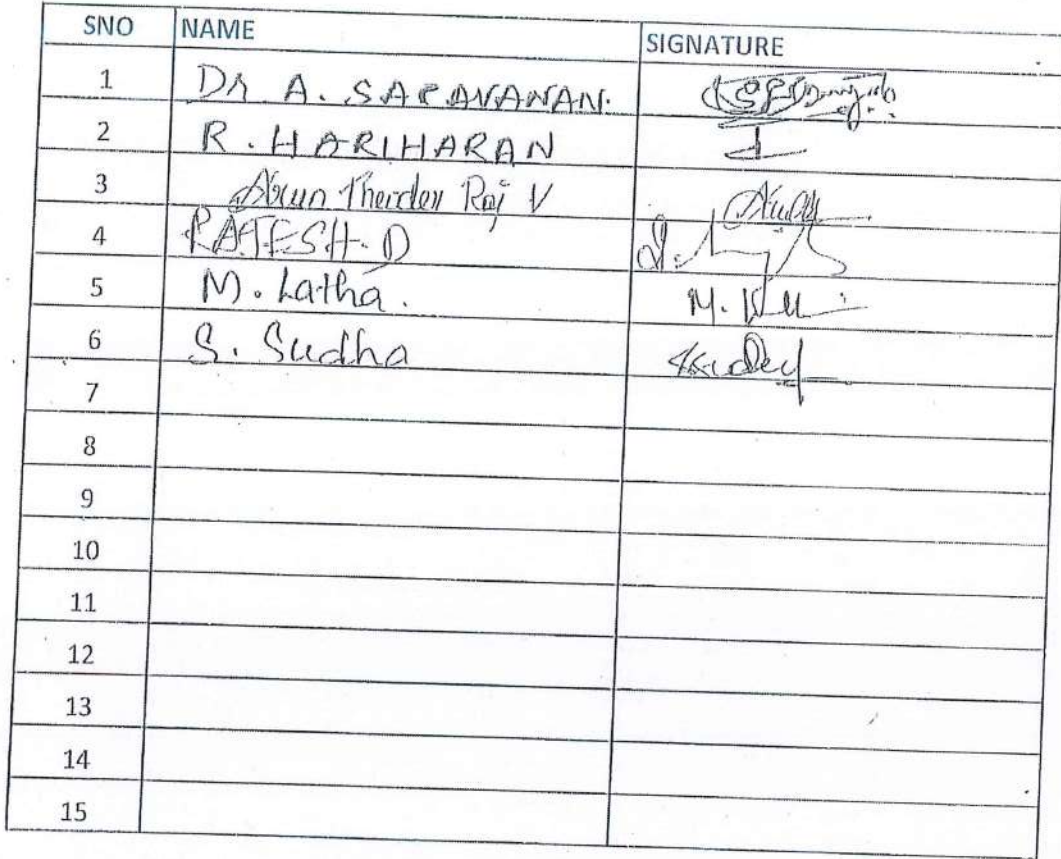 SNO NAME SIGNATURE
1 Dr A. SARAVANAN.
2 R. HARIHARAN
3 Arun Raj V
4 RAJESH. D
5 M. Latha. M.
6 S. Sudha
7
8
9
10
11
12
13
14
15